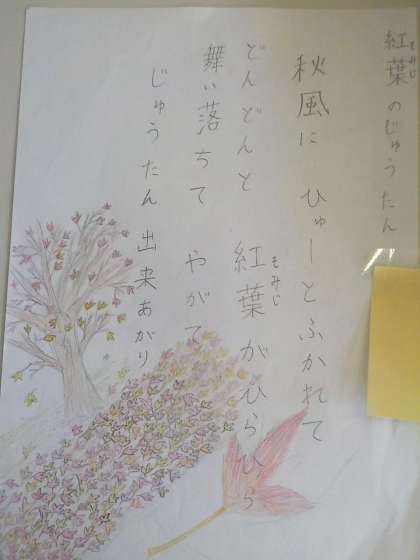 紅葉のじゅうたん
もみじ
秋風に ひゅーとふかれて
どんどんと 紅葉がひらひら
もみじ
舞い落ちて やがて
じゅうたん 出来あがり